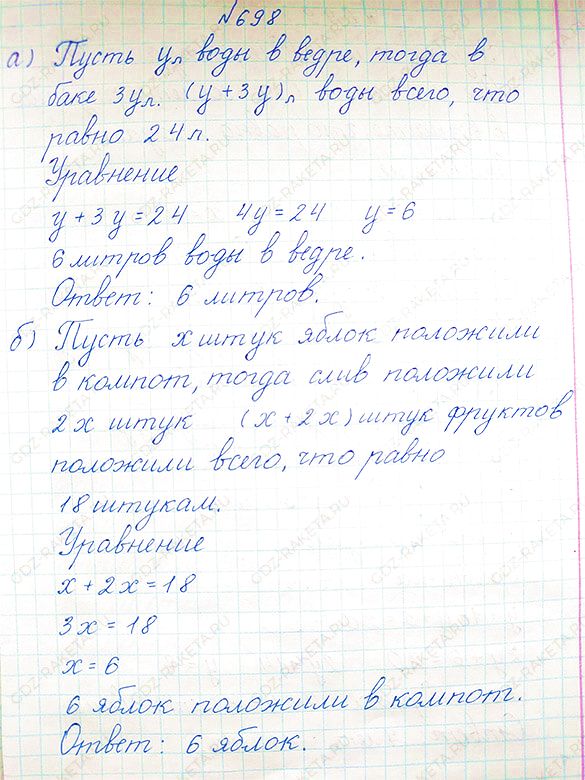 №698
а) Пусть у л воды в ведре, тогда в
баке 3у л. (у + 3у) л воды всего, что
равно 24 л.
Уравнение
у + 3у = 24 4у = 24 у = 6
6 литров воды в ведре.
Ответ: 6 литров.
б) Пусть х штук яблок положили
в компот, тогда слив положили
2х штук (х + 2х) штук фруктов
положили всего, что равно
18 штукам.
Уравнение
х + 2х = 18
3х = 18
х = 6
6 яблок положили в компот.
Ответ: 6 яблок.
GDZ-RAKETA.RU